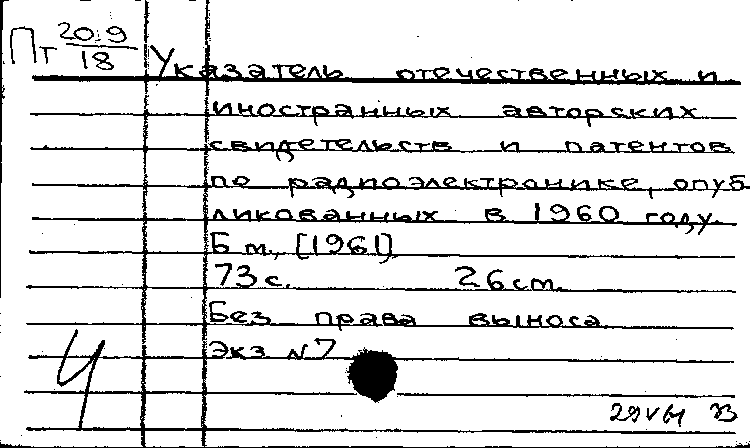 Пт 20.9
18
Указатель отечественных и
иностранных авторских
свидетельств и патентов
по радиоэлектронике, опуб
ликованных в 1960 году.
Б м., [1961]
73 с. 26 ст.
Без права выноса
Экз N 7
Ч
29 VI 61